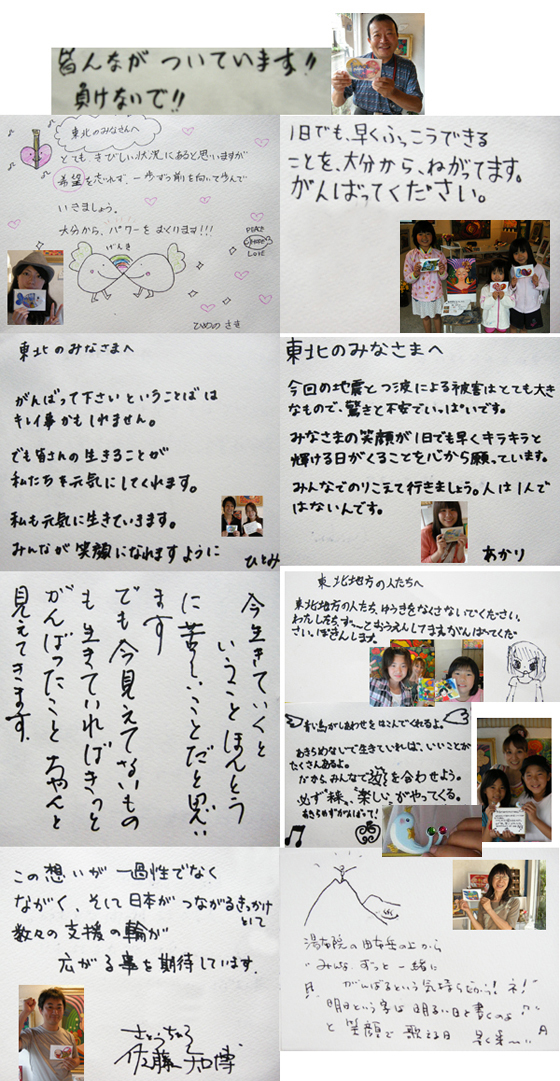 皆んなが ついています!!
負けないで!!
東北のみなさんへ
とても きびしい状況にあると思いますが
希望を忘れず、一歩ずつ前を向いて歩んで
いきましょう。
大分から、パワーを おくります!!!
げんき
PEACE
LOVE
ひめの さき
1日でも、早くふっこうできる
ことを、大分から、ねがってます。
がんばってください。
東北のみなさまへ
がんばって下さい ということば は
キレイ事かもしれません。
でも皆さんの生きることが
私たちを元気にしてくれます。
私も元気に生きていきます。
みんなが 笑顔になれますように
ひとみ
東北のみなさまへ
今回の地震とつ波による被害はとても大き
なもので、驚きと不安でいっぱいです。
みなさまの笑顔が1日でも早くキラキラと
輝ける日がくることを心から願っています。
みんなでのりこえて行きましょう。人は1人で
はないんです。
あかり
今生きていくと
いうことほんとう
に苦しいことだと思い
ます
でも今見えてないもの
も生きていればきっと
がんばったこと ちゃんと
見えてきます。
東北地方の人たちへ
東北地方の人たち、ゆうきをなくさないでください。
わたしたち、ず〜っとおうえんしてますがんばってくだ
さい。ぼきんします。
青い鳥がしあわせをはこんでくれるよ。
あきらめないで生きていれば、いいことが
たくさんあるよ。
だから、みんなで を合わせよう。
必ず 楽しいがやってくる。
あきらめずがんばって!
この想いが 一過性でなく
ながく、そして日本が つながるきっかけ
として
数々の支援の輪が
広がる事を期待しています。
さとうちひろ
佐藤知博
湯布院の由布岳の上から
みんな ずっと 一緒に
がんばるという気持ちだから!ネ!
明日という字は 明るい日と書くのよ
と 笑顔で 歌える日 早く来